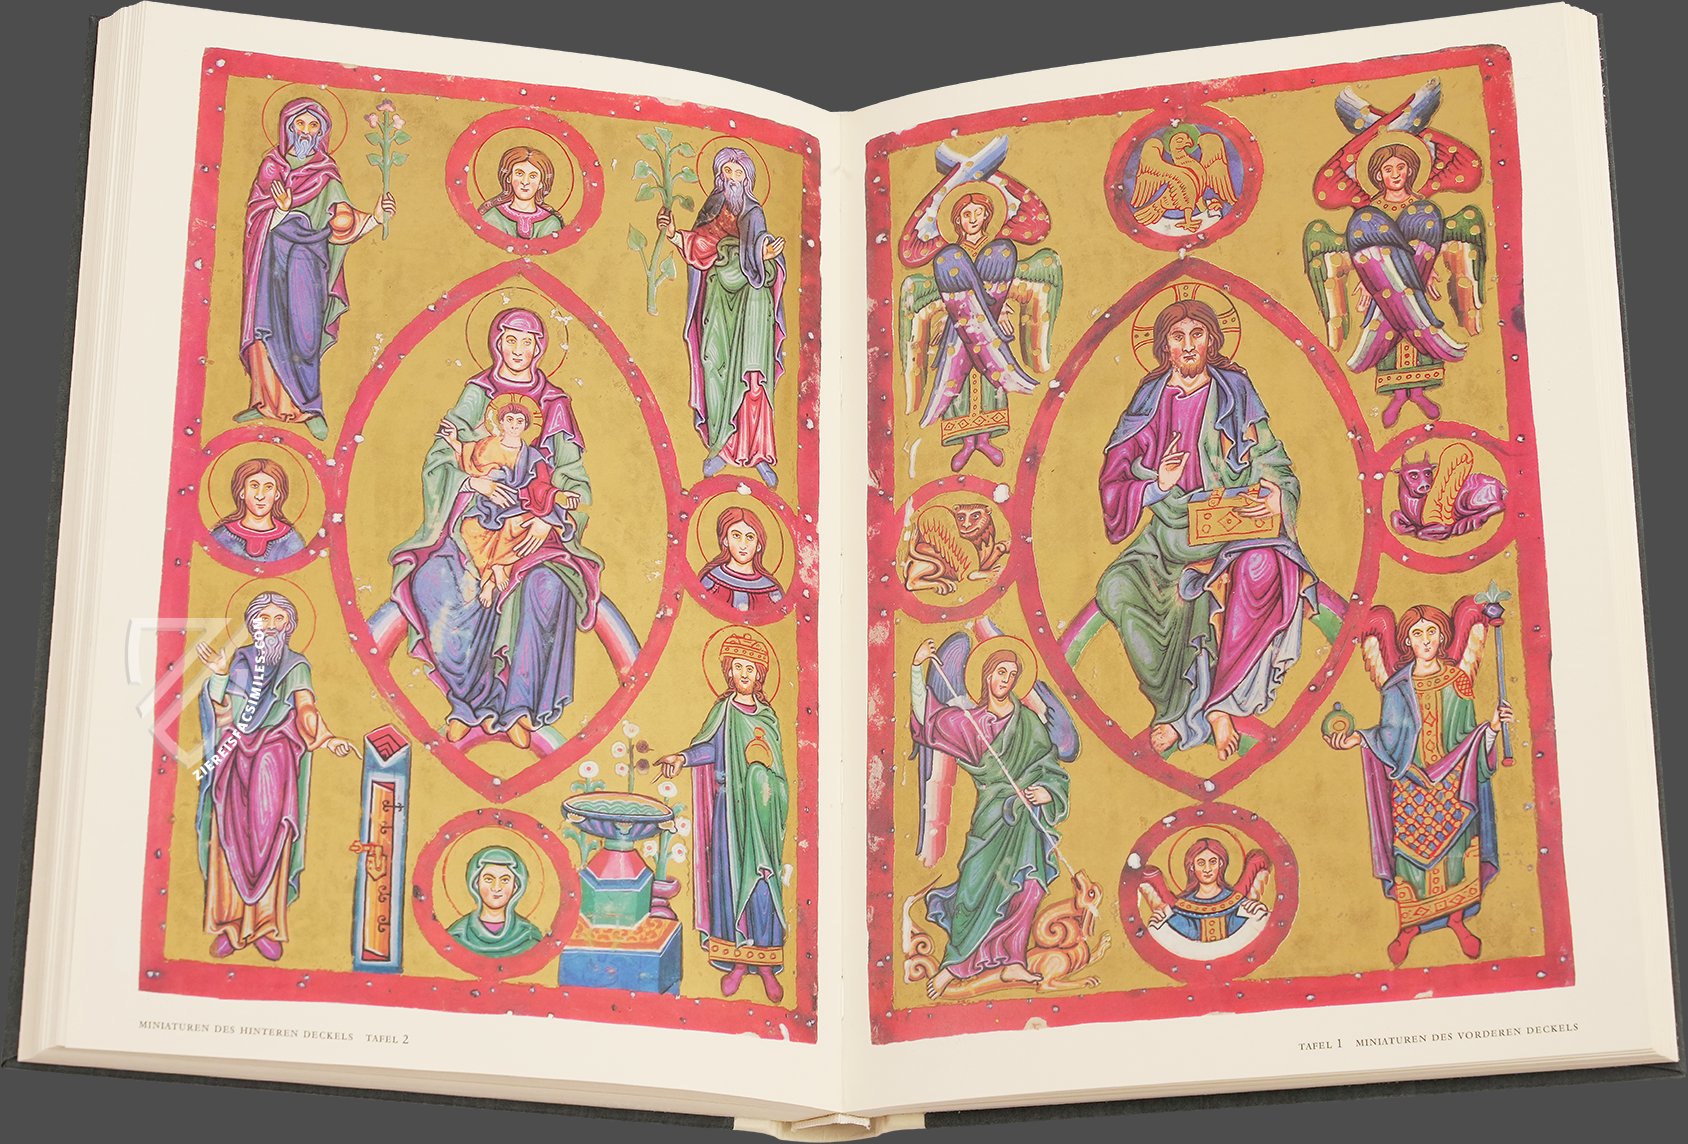 MINIATUREN DES HINTEREN DECKELS TAFEL 2
TAFEL 1 MINIATUREN DES VORDEREN DECKELS
ZIEREISFACSIMILES.COM